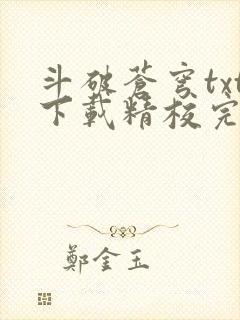 斗破蒼穹txt
下載精校完
鄭金玉